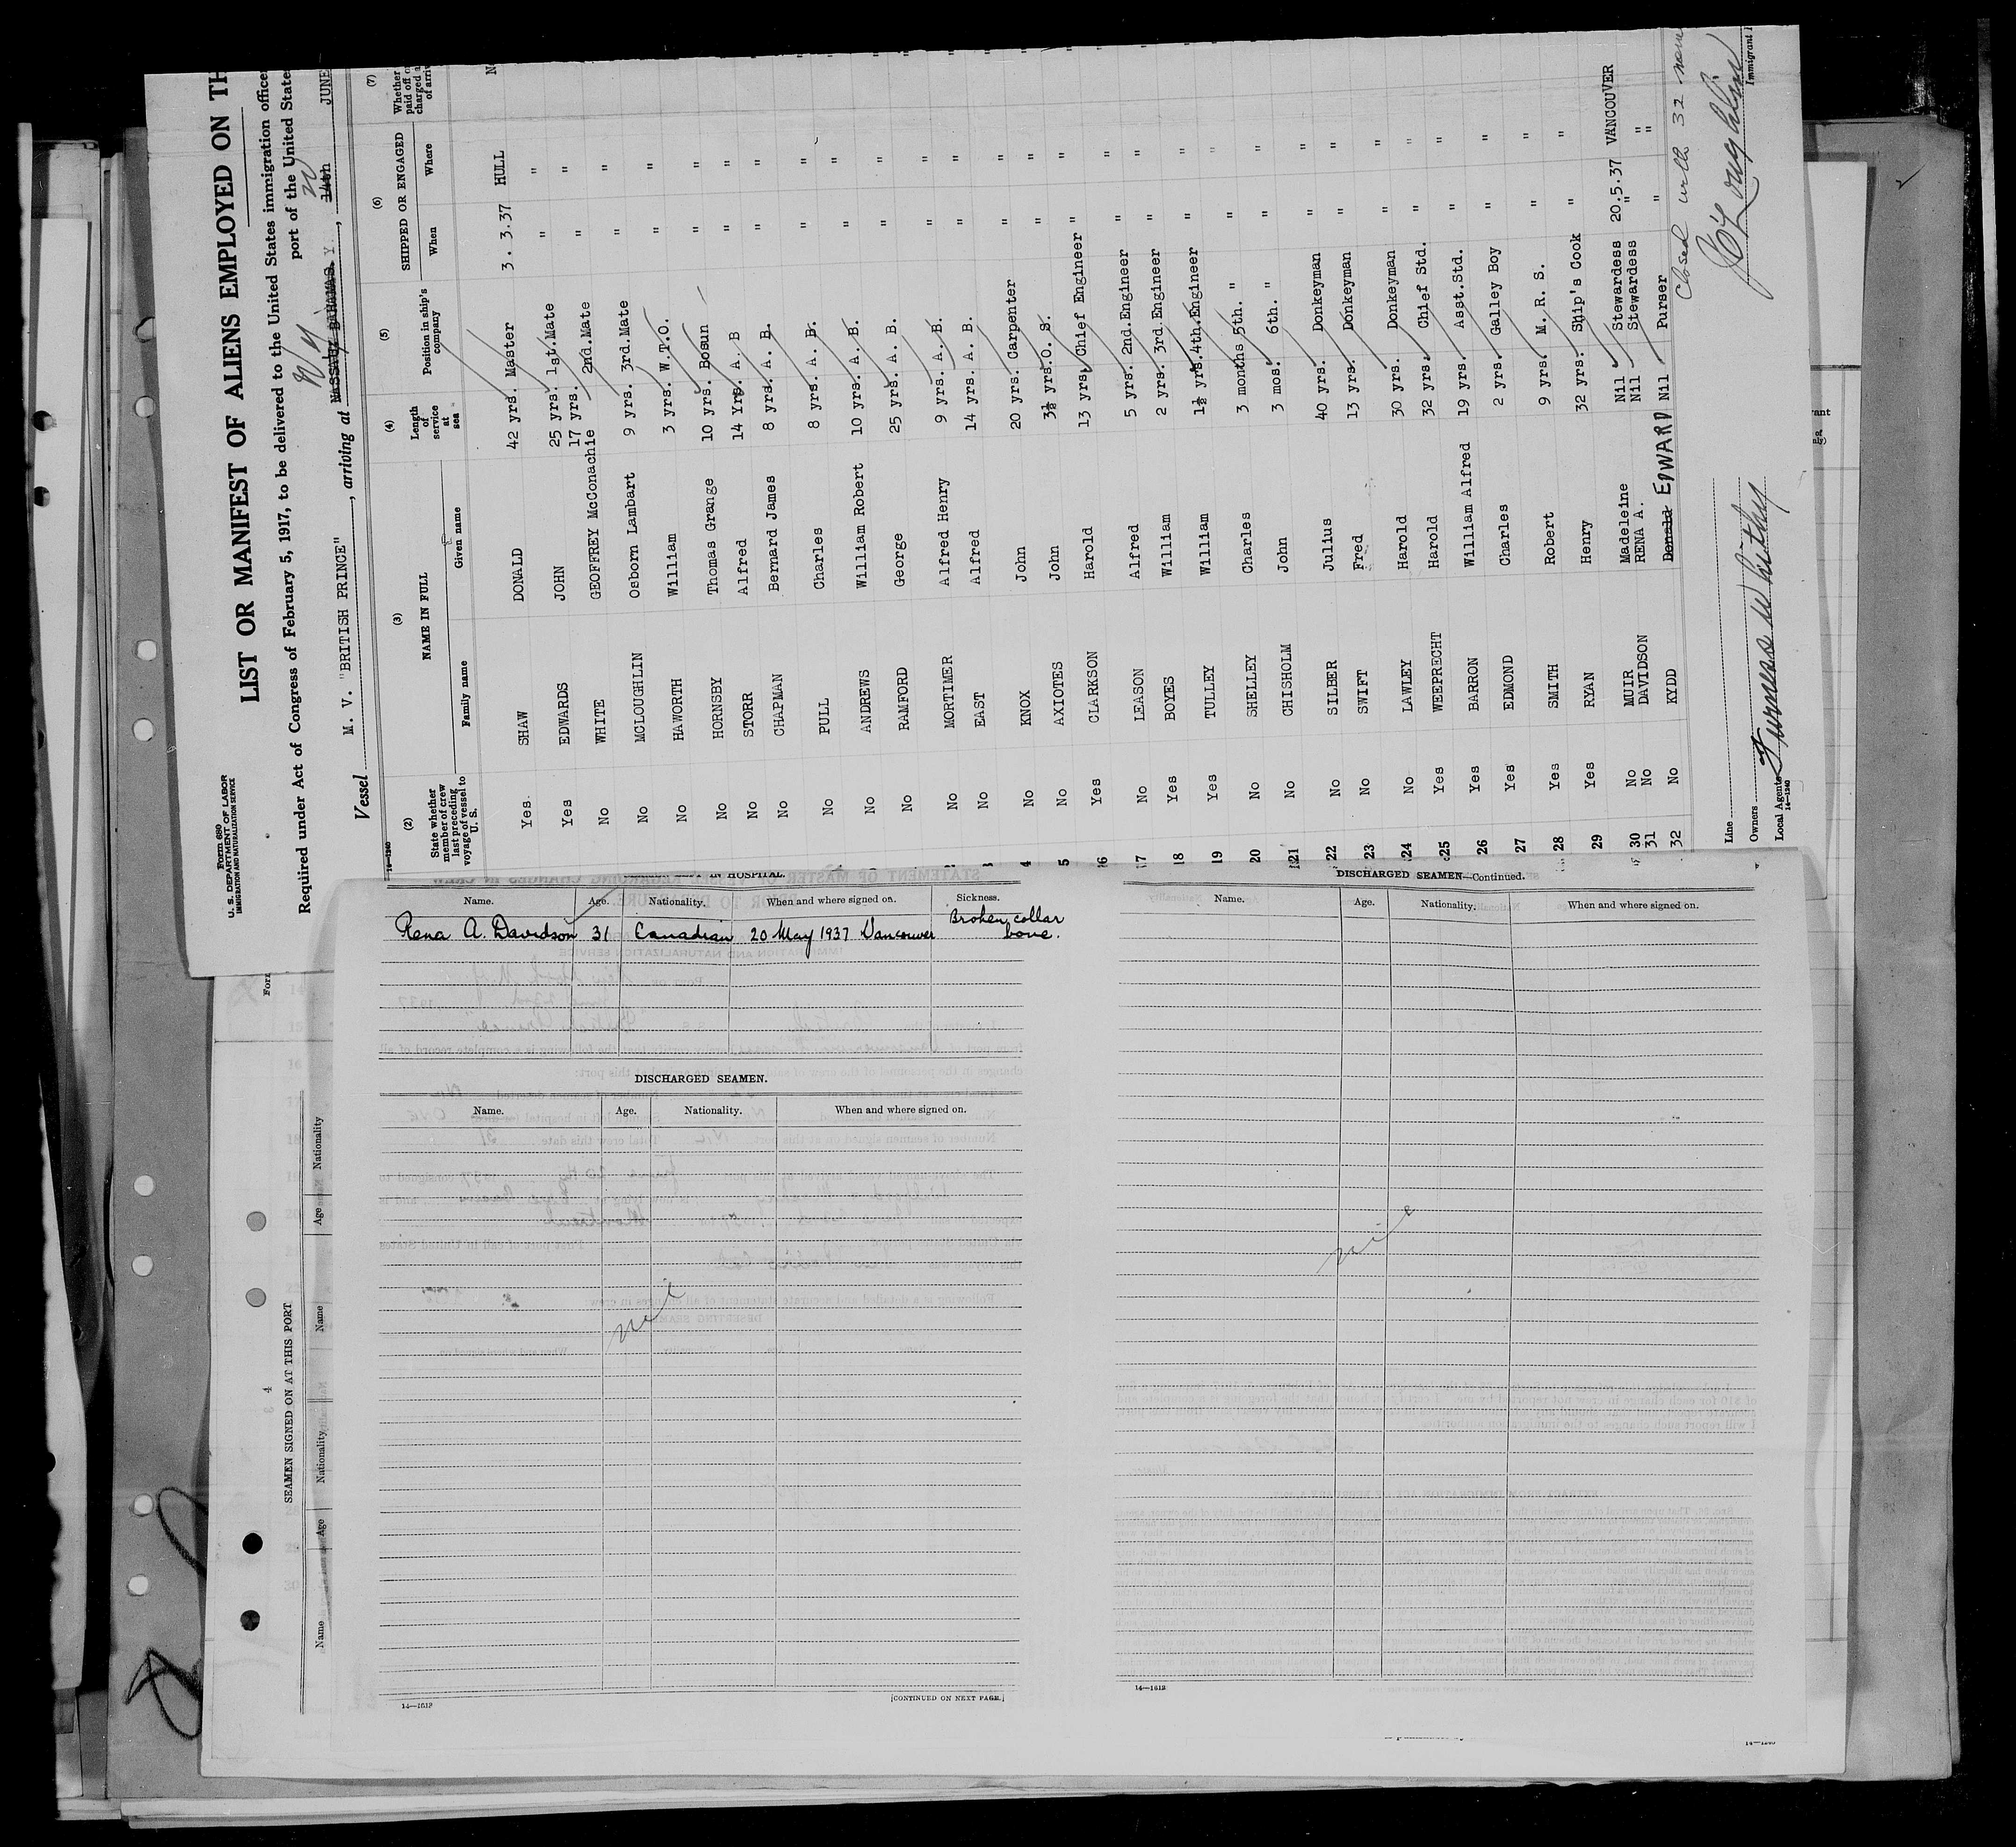 Form 680
U. S. DEPARTMENT OF LABOR
IMMIGRATION AND NATURALIZATION SERVICE
LIST OR MANIFEST OF ALIENS EMPLOYED ON TH
Required under Act of Congress of February 5, 1917, to be delivered to the United States immigration officer
port of the United States
Vessel M. V. "BRITISH PRINCE", arriving at NASSAU, BAHAMAS. N Y, 14th 20 JUNE
14—1240
(2) (3) (4) (5) (6) (7)
State whether member of crew last preceding voyage of vessel to U. S.
NAME IN FULL
Family name Given name
Length of service at sea
Position in ship's company
SHIPPED OR ENGAGED
When Where
Whether paid off or
Yes SHAW DONALD 42 yrs. Master 3. 3.37 HULL
Yes EDWARDS JOHN 25 yrs. 1st.Mate " "
No WHITE GEOFFREY McConachie 17 yrs. 2nd.Mate " "
No MCLOUGHLIN Osborn Lambart 9 yrs. 3rd.Mate " "
No HAWORTH William 3 yrs. W.T.O. " "
No HORNSBY Thomas Grange 10 yrs. Bosun " "
No STORR Alfred 14 Yrs. A. B " "
No CHAPMAN Bernard James 8 yrs. A. B. " "
No PULL Charles 8 yrs. A. B. " "
No ANDREWS William Robert 10 yrs. A. B. " "
No RAMFORD George 25 yrs. A. B. " "
No MORTIMER Alfred Henry 9 yrs. A. B. " "
No EAST Alfred 14 yrs. A. B. " "
4 No KNOX John 20 yrs. Carpenter " "
5 No AXIOTES John 3½ yrs. O. S. " "
16 Yes CLARKSON Harold 13 yrs. Chief Engineer " "
17 No LEASON Alfred 5 yrs. 2nd.Engineer " "
18 Yes BOYES William 2 yrs. 3rd.Engineer " "
19 Yes TULLEY William 1½ yrs. 4th.Engineer " "
20 No SHELLEY Charles 3 months 5th. " " "
21 No CHISHOLM John 3 mos. 6th. " " "
22 No SILBER Julius 40 yrs. Donkeyman " "
23 No SWIFT Fred 13 yrs. Donkeyman " "
24 No LAWLEY Harold 30 yrs. Donkeyman " "
25 Yes WEEPRECHT Harold 32 yrs. Chief Std. " "
26 Yes BARRON William Alfred 19 yrs. Asst.Std. " "
27 Yes EDMOND Charles 2 yrs. Galley Boy " "
28 Yes SMITH Robert 9 yrs. M. R. S. " "
29 Yes RYAN Henry 32 yrs. Ship's Cook " "
30 No MUIR Madeleine Nil Stewardess 20.5.37 VANCOUVER
31 No DAVIDSON RENA A. Nil Stewardess " "
32 No KYDD Donald EDWARD Nil Purser " "
Closed with 32 names
Line
Owners Furness Withy
Local Agents
14—1240
IN HOSPITAL.
Name. Age. Nationality. When and where signed on. Sickness.
Rena A. Davidson 31 Canadian 20 May 1937 Vancouver Broken collar bone.
DISCHARGED SEAMEN.
Name. Age. Nationality. When and where signed on.
nil
14—1612
[CONTINUED ON NEXT PAGE.]
DISCHARGED SEAMEN—Continued.
Name. Age. Nationality. When and where signed on.
nil
14—1612
SEAMEN SIGNED ON AT THIS PORT
Name Age Nationality Name Age Nationality